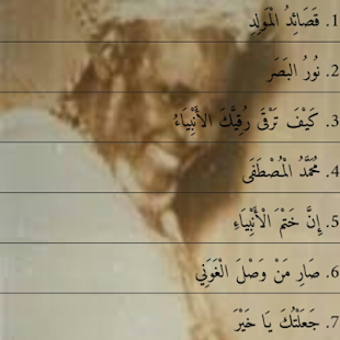 1. قَصَائِدُ الْمَوْلِدِ
2. نُورُ البَصَر
3. كَيْفَ تَرْقَى رُقِيَّكَ الأَنْبِيَاءُ
4. مُحَمَّدُ الْمُصْطَفَى
5. إِنَّ خَتْمَ الْأَنْبِيَاءِ
6. صَارِ مَنْ وَصْلَ الْغَوَنِي
7. جَعَلْتُكَ يَا خَيْرَ